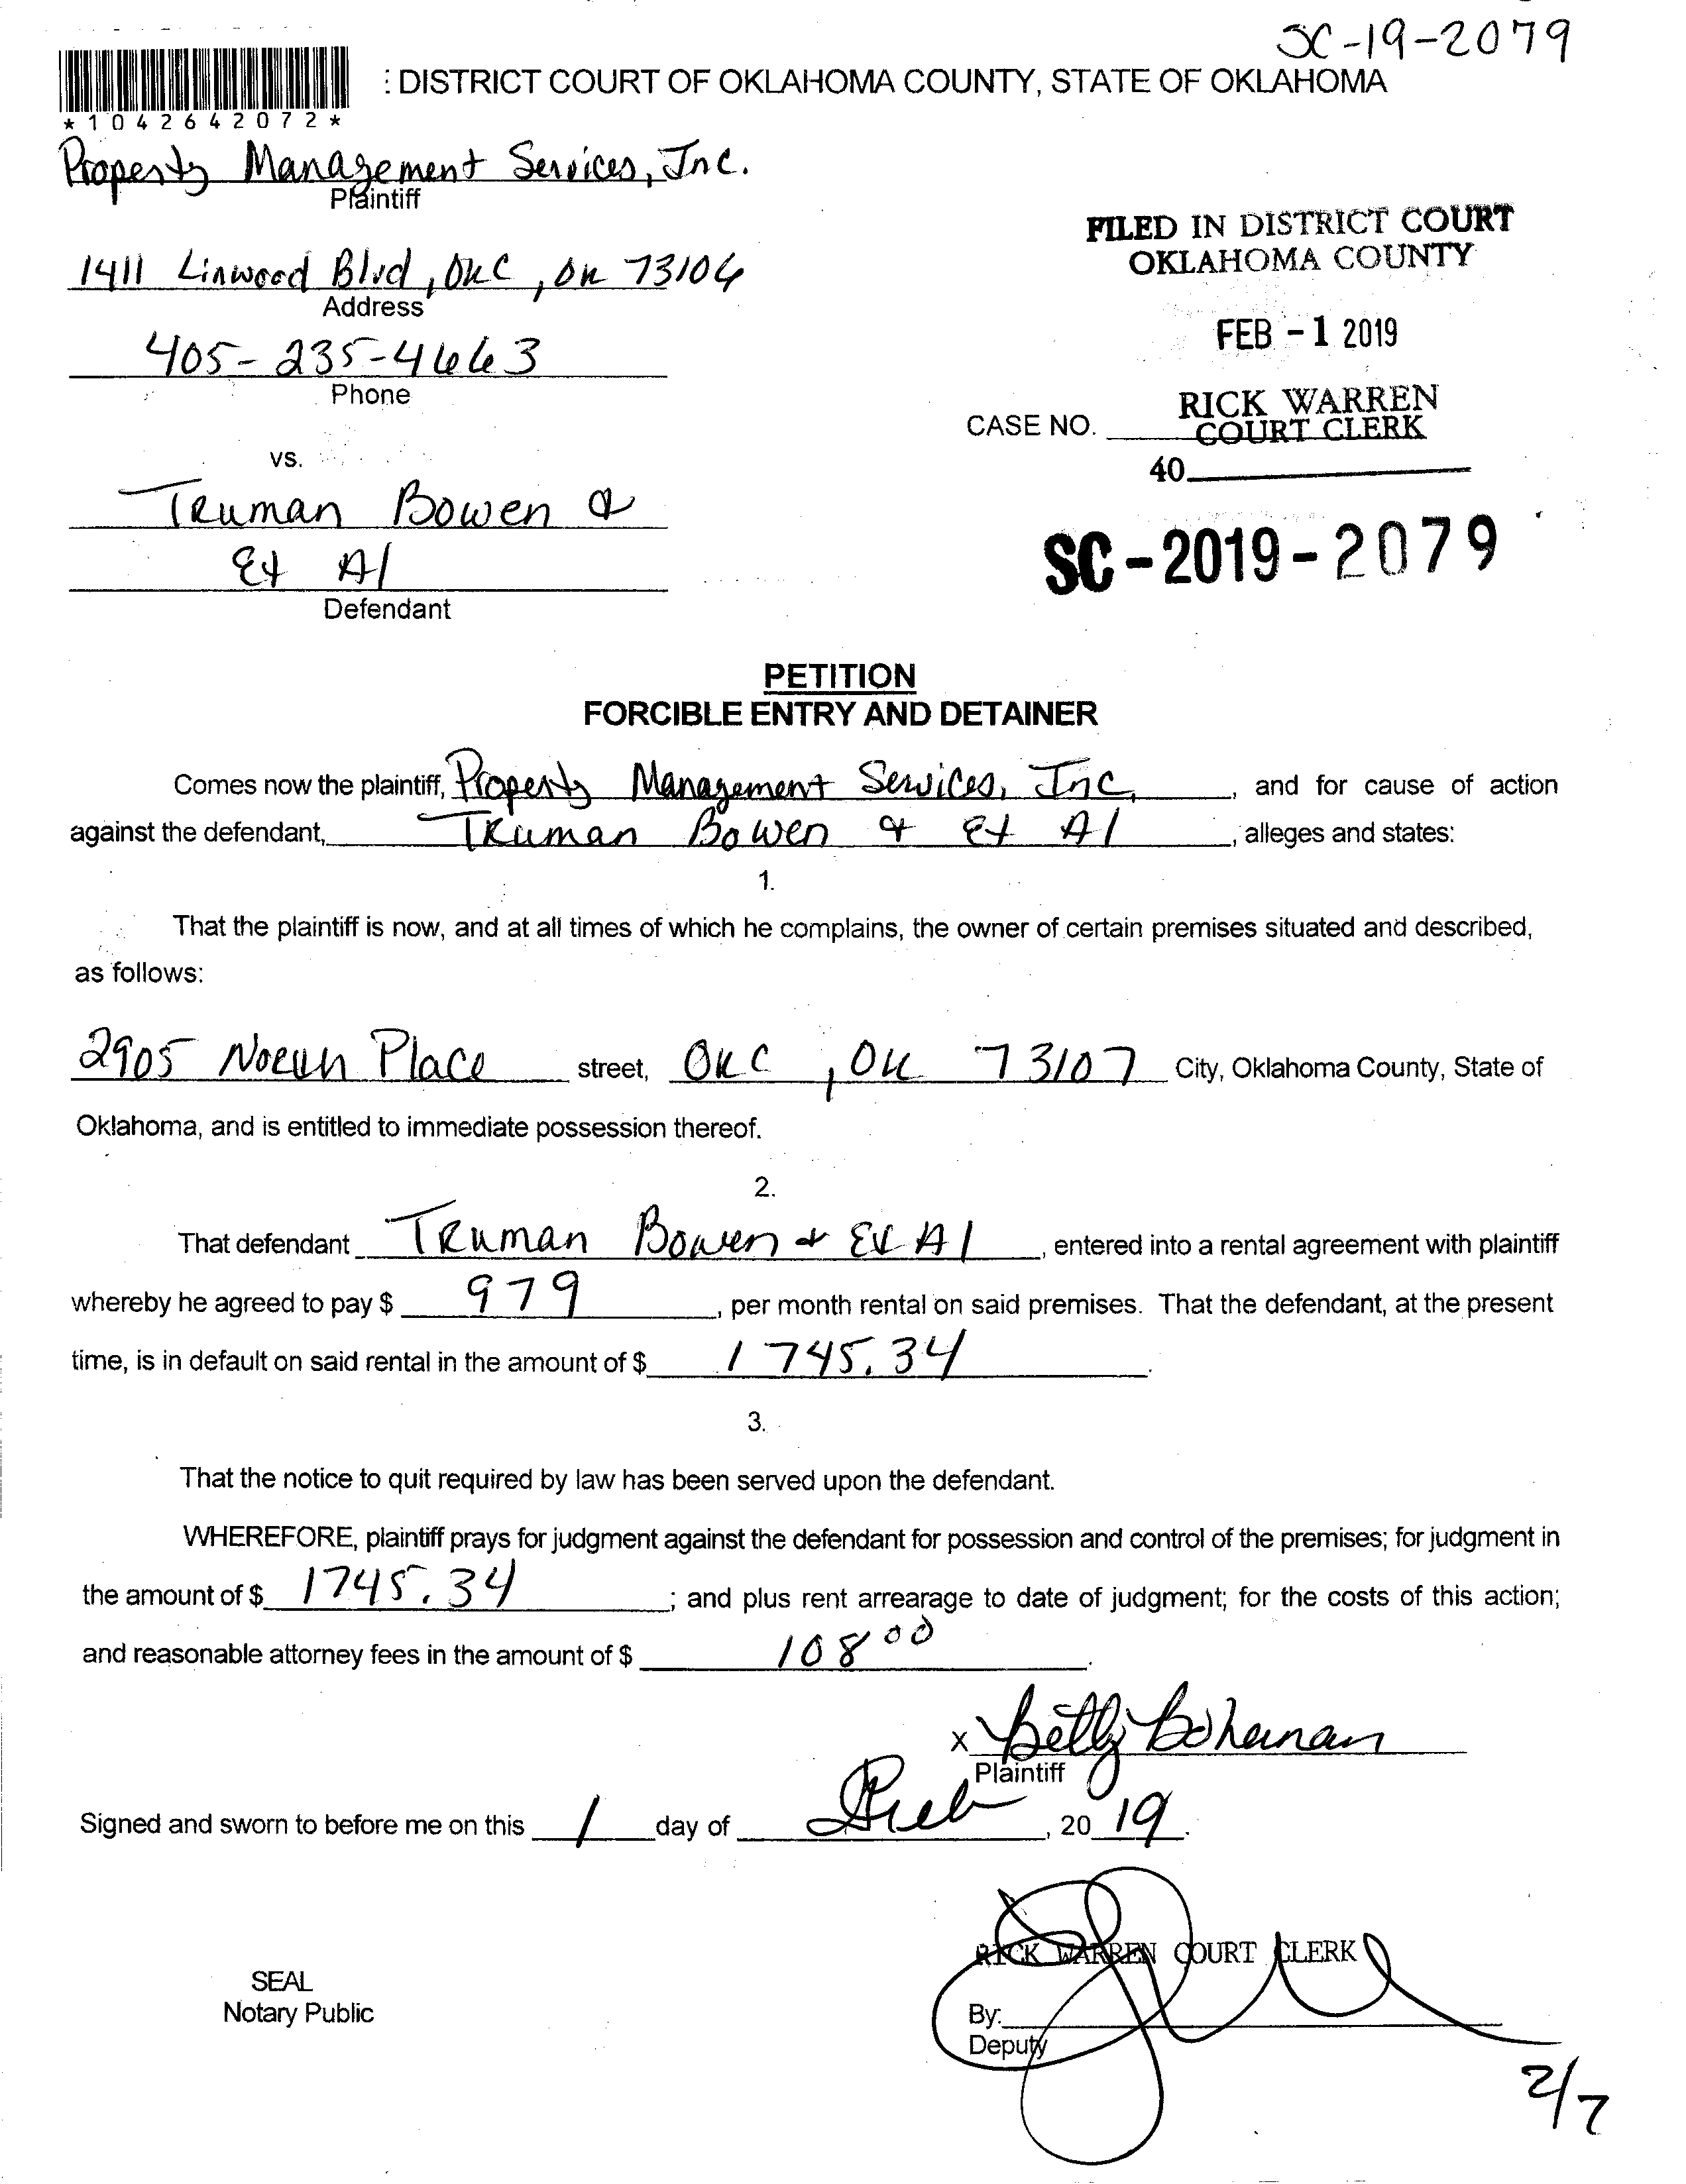 SC-19-2079
: DISTRICT COURT OF OKLAHOMA COUNTY, STATE OF OKLAHOMA
*1042642072*
Property Management Services, Inc.
Plaintiff
1411 Linwood Blvd, OKC, OK 73106
Address
405-235-4663
Phone
vs.
Truman Bowen &
Et Al
Defendant
FILED IN DISTRICT COURT
OKLAHOMA COUNTY
FEB -1 2019
RICK WARREN
CASE NO. COURT CLERK
40
SC-2019-2079
PETITION
FORCIBLE ENTRY AND DETAINER
Comes now the plaintiff, Property Management Services, Inc, and for cause of action
against the defendant, Truman Bowen & Et Al, alleges and states:
1.
That the plaintiff is now, and at all times of which he complains, the owner of certain premises situated and described,
as follows:
2905 Place street, OKC, OK 73107 City, Oklahoma County, State of
Oklahoma, and is entitled to immediate possession thereof.
2.
That defendant Truman Bowen & Et Al, entered into a rental agreement with plaintiff
whereby he agreed to pay $ 979, per month rental on said premises. That the defendant, at the present
time, is in default on said rental in the amount of $ 1745.34.
3.
That the notice to quit required by law has been served upon the defendant.
WHEREFORE, plaintiff prays for judgment against the defendant for possession and control of the premises; for judgment in
the amount of $ 1745.34; and plus rent arrearage to date of judgment; for the costs of this action;
and reasonable attorney fees in the amount of $ 108 00.
x Betty Bohanan
Plaintiff
Signed and sworn to before me on this 1 day of Feb, 20 19.
RICK WARREN COURT CLERK
SEAL
Notary Public
By:
Deputy
2/7